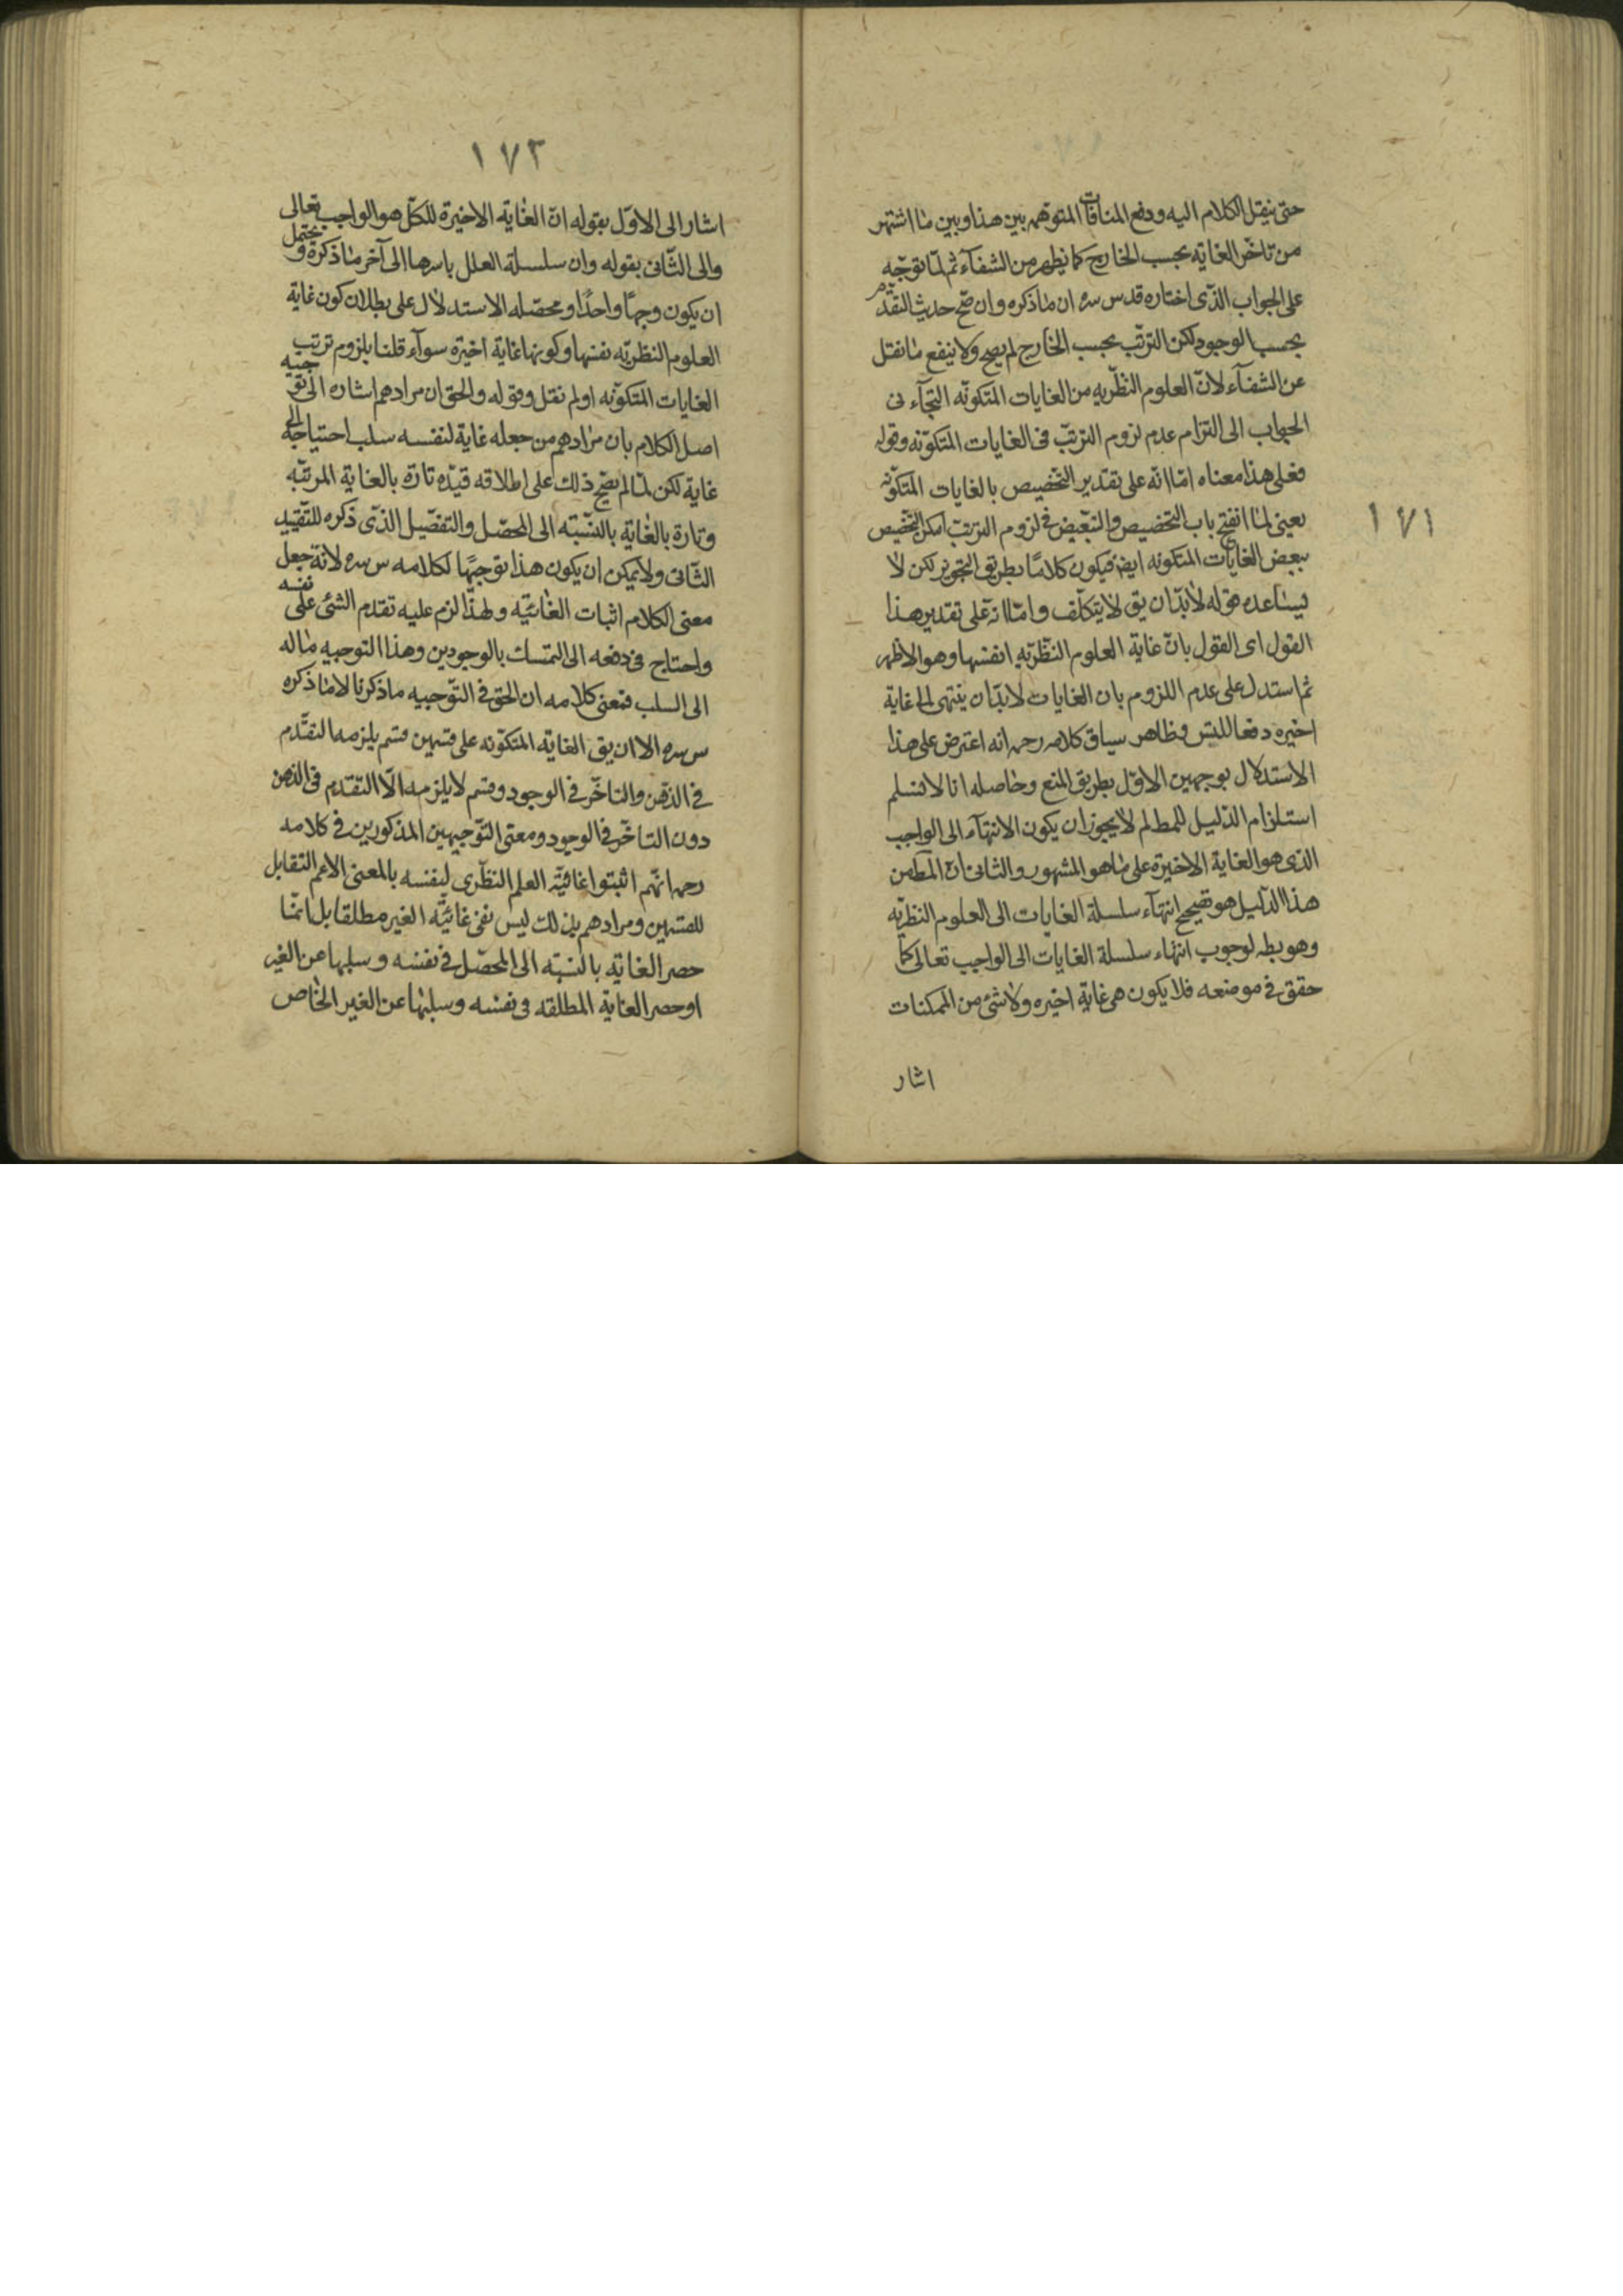 حتى ينقل الكلام اليه ودفع المنافات المتوهم بين هذا وبين ما اشتهر
من تاخر الغاية بحسب الخارج كما يظهر من الشفاء ثم لما توجّه
على الجواب الذى اختاره قدس سره ان ما ذكره وان صح حديث التقدم
بحسب الوجود لكن الترتّب بحسب الخارج لم يصح ولا ينفع ما نقل
عن الشفآء لانّ العلوم النظريه من الغايات المتكونّه التجآء فى
الجواب الى التزام عدم لزوم الترتبّ فى الغايات المتكوّنه وقوله
فعلى هذا معناه امّا انّه على تقدير التخصيص بالغايات المتكوّنه
١٧١
يعنى لما انفتح باب التخصيص والتبعيض فى لزوم الترتبّ امكن التخصيص
ببعض الغايات المتكونه ايضً فيكون كلامًا بطريق التجويز لكن لا
يساعده قوله لابدّ ان يق لا يتكلّف وامّا انّه على تقدير هذا
القول اى القول بانّ غاية العلوم النظريّه انفسها وهو الاظهر
ثم استدل على عدم اللزوم بان الغايات لابدّ ان ينتهى الى غاية
اخيره دفعا للتس وظاهر سياق كلامه رحمه انه اعترض على هذا
الاستدلال بوجهين الاوّل بطريق المنع وحاصله انا لا نسلم
استلزام الدّليل للمط لم لا يجوز ان يكون الانتهآء الى الواجب
الذى هو الغاية الاخيرة على ما هو المشهور والثانى انّ المط من
هذا الدّليل هو تصحيح انتهآء سلسلة الغايات الى العلوم النظريّه
وهو بط لوجوب انتهاء سلسلة الغايات الى الواجب تعالى كما
حقق فى موضعه فلا يكون هى غاية اخيره ولا شئ من الممكنات
اشار
١٧٢
اشار الى الاوّل بقوله انّ الغاية الاخيرة للكلّ هو الواجب تعالى
والى الثّانى بقوله وان سلسلة العلل باسرها الى آخر ما ذكره ويحتمل
ان يكون وجهًا واحدًا ومحصّله الاستدلال على بطلان كون غاية
العلوم النظريّه نفسها وكونها غاية اخيرة سوآء قلنا بلزوم ترتب
الغايات المتكوّنه او لم نقل وقوله والحق ان مرادهم اشاره الى توجيه
اصل الكلام بان مرادهم من جعله غاية لنفسه سلب احتياجه الى
غاية لكن لمّا لم يصح ذلك على اطلاقه قيّده تارة بالغاية المرتبّه
وتارة بالغاية بالنسّبته الى المحصّل والتفصّيل الذّى ذكره للتّقييد
الثّانى ولا يمكن ان يكون هذا توجيهًا لكلامه س سره لانّه جعل
معنى الكلام اثبات الغائيّه ولهذا لزم عليه تقدم الشئ على نفسه
واحتاج فى دفعه الى التمسك بالوجودين وهذا التوجيه ماله
الى السلب فمعنى كلامه ان الحق فى التّوجيه ما ذكرنا لا ما ذكره
س سره الا ان يق الغاية المتكوّنه على قسمين قسم يلزمه التقدّم
فى الذّهن والتاخّر فى الوجود وقسم لا يلزمه الّا التقدّم فى الذهن
دون التاخّر فى الوجود ومعنى التوّجيهين المذكورين فى كلامه
رحمه انّهم اثبتوا غائيّة العلم النظّرى لنفسه بالمعنى الاعم التقابل
للقسمين ومرادهم بذلك ليس نفى غائيّة الغير مطلقا بل انمّا
حصر الغاية بالنسبّه الى المحصّل فى نفسه وسلبها عن الغير
او حصر الغاية المطلقه فى نفسه وسلبها عن الغير الخاص